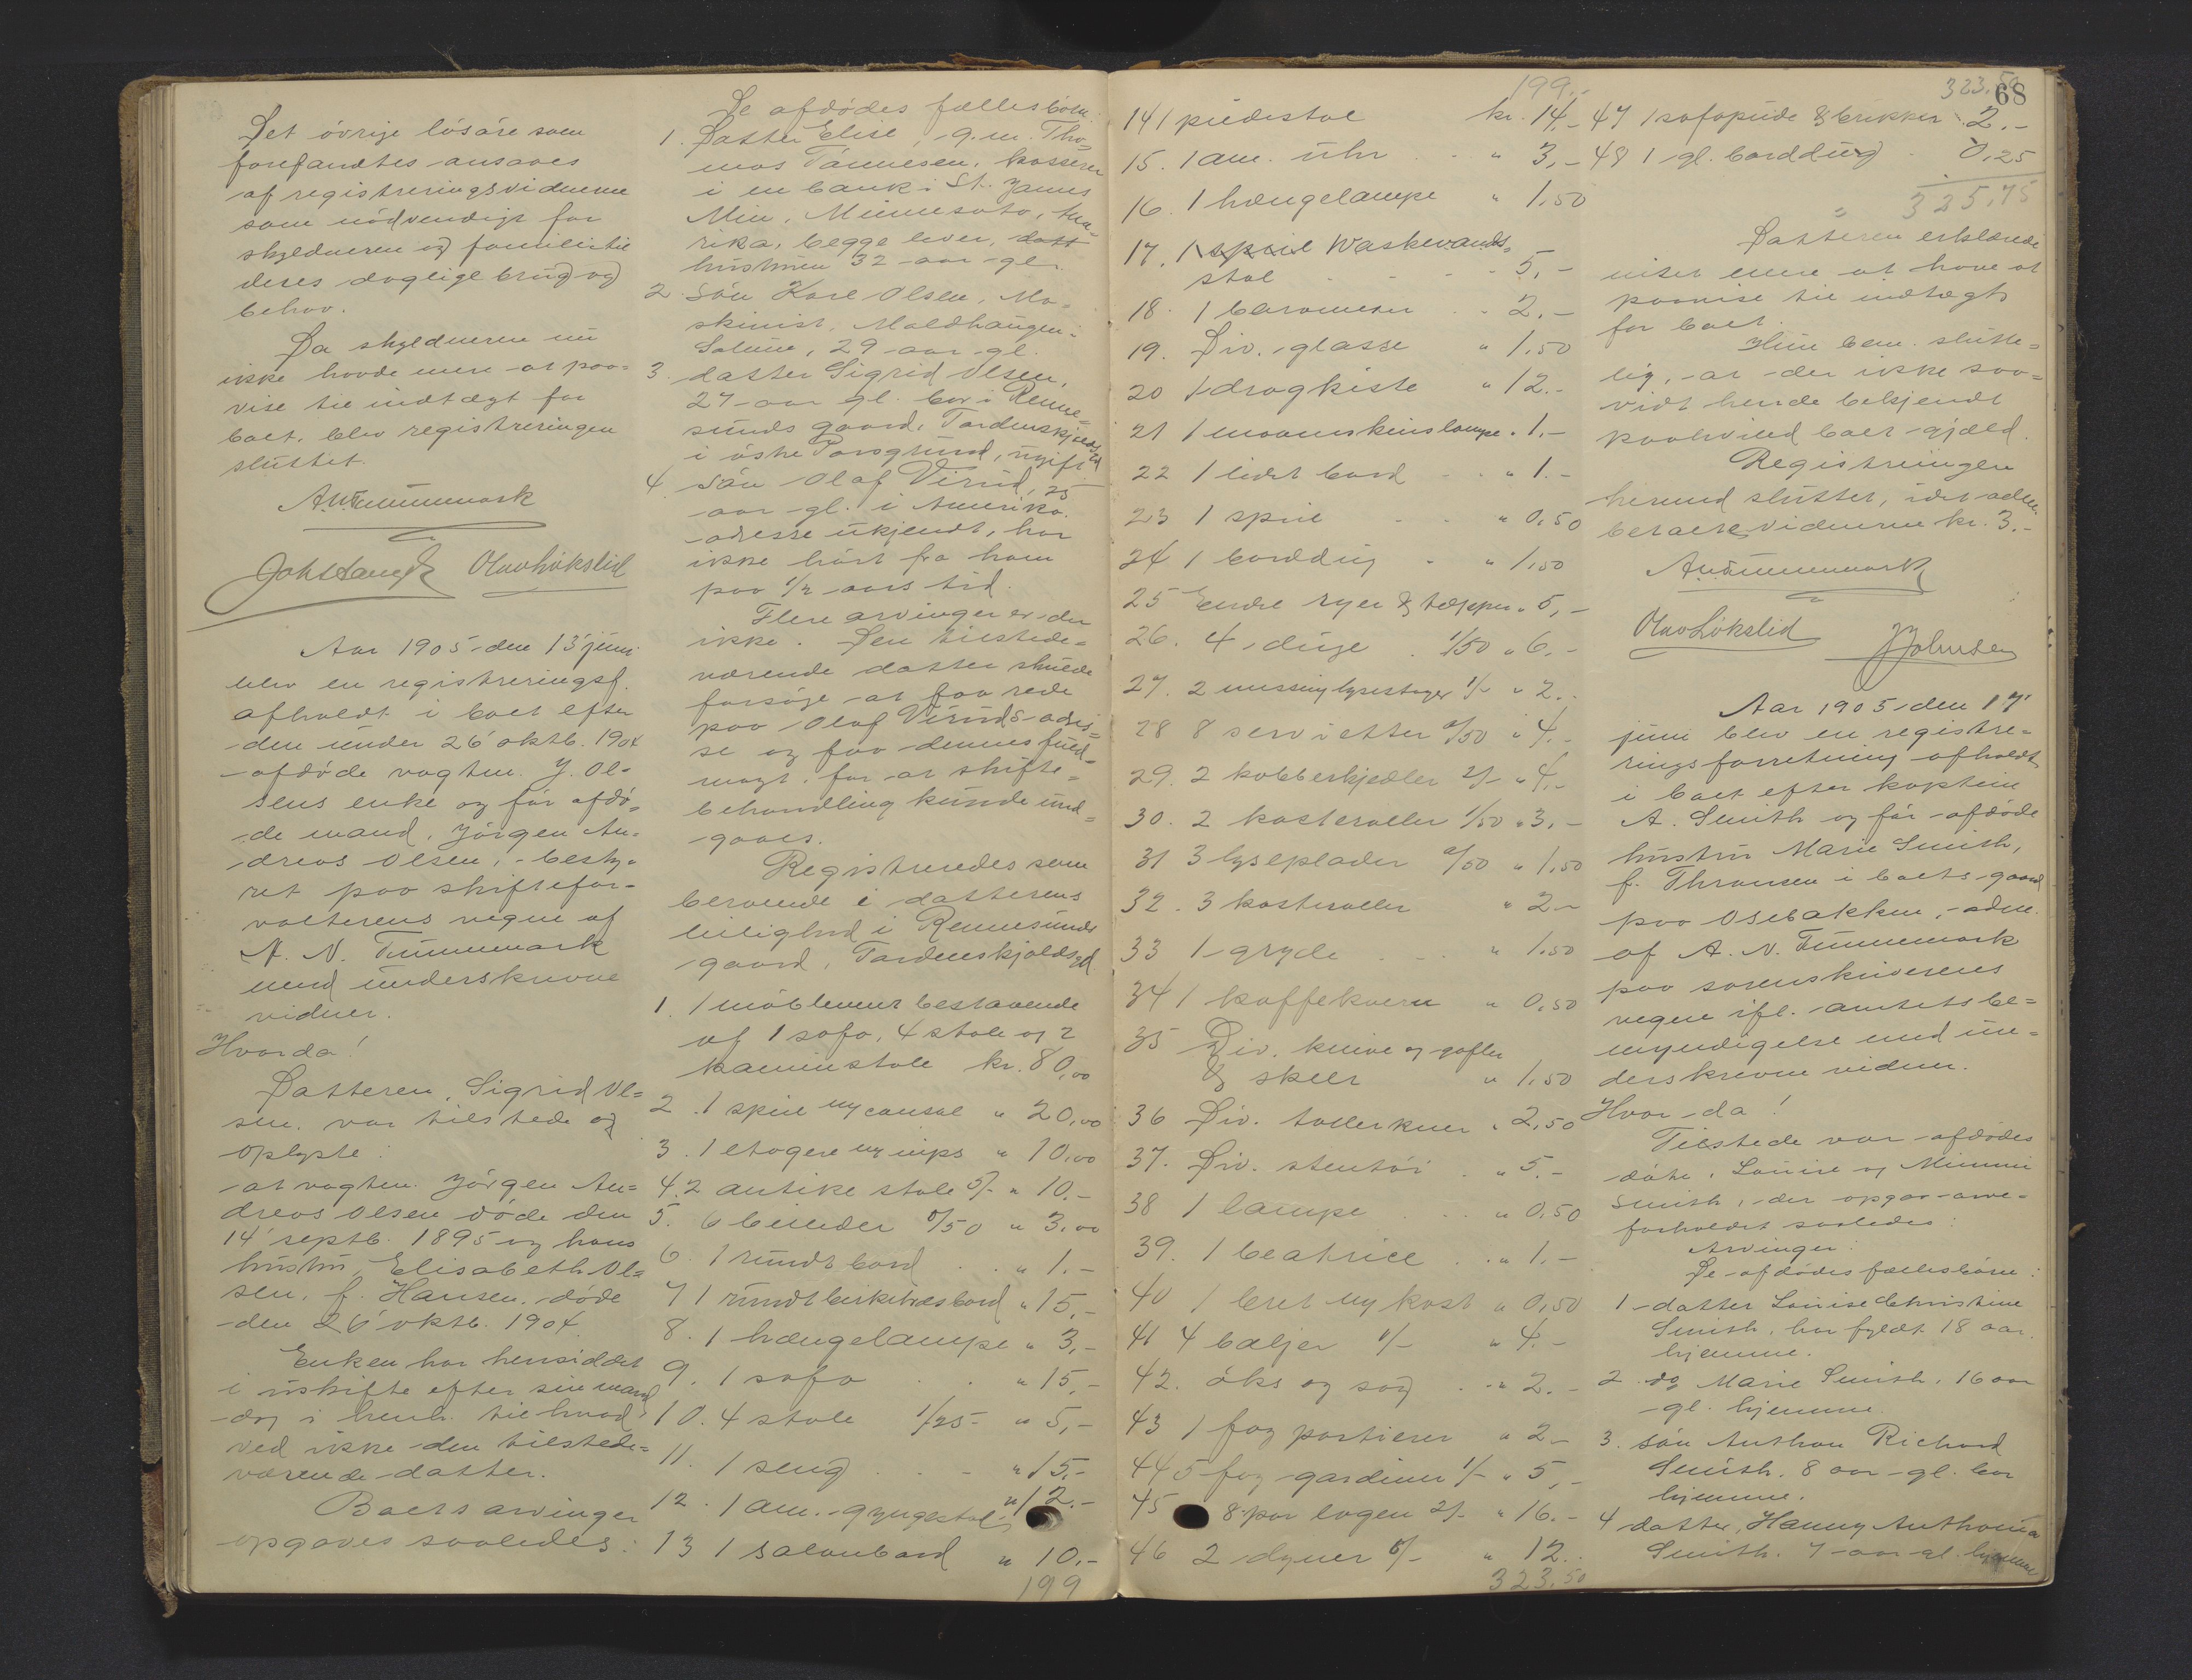 Det övrige lösöre som
forefandtes ansaaes
af registreringsvidnerne
som nödvendigt for
skyldneren og familie til
deres daglige brug og
behov.
Da skyldneren nu
ikke havde mere at paa=
vise til indtægt for
boet, blev registreringen
sluttet.
A. N. Tummemark
Olav Lökslid
Aar 1905 den 13' juni
blev en registreringsf.
afholdt i boet efter
den under 26' oktb. 1904
afdöde vagtm. J. Ol-
sens enke og för afdö=
de mand, Jörgen An=
dreas Olsen, besty=
ret paa skiftefor=
valterens vegne af
A. N. Tummemark
med underskrevne
vidner.
Hvorda!
Datteren, Sigrid Ol=
sen, var tilstede og
oplyste:
at vagtm. Jörgen An=
dreas Olsen döde den
14' septb. 1895 og hans
hustru, Elisabeth Ol=
sen, f. Hansen, döde
den 26' oktb. 1904.
Enken har hensiddet
i uskifte efter sin mand
dog i henh. til hvad
ved ikke den tilstede=
værende datter.
Boets arvinger
opgaves saaledes:
De afdödes fællesbörn
1. Datter Elise, g. m. Tho=
mas Tönnesen, kasserer
i en bank i St. James
Min, Minnesota, Ame=
rika, begge lever, datt
hustruen 32 aar gl.
2. Sön Karl Olsen, Ma=
skinist, Moldhaugen i
Solum, 29 aar gl.
3. datter Sigrid Olsen,
27 aar gl. bor i Renne=
sunds gaard, Tordenskjoldsgd
i östre Porsgrund, ugift
4. Sön Olaf Virud, 25
aar gl. i Amerika.
adresse ukjendt, har
ikke hört fra ham
paa 1/2 aars tid.
Flere arvinger er der
ikke. Den tilstede=
værende datter skulde
forsöge at faa rede
paa Olaf Viruds adres=
se og faa dennes fuld=
magt, for at skifte=
behandling kunde und=
gaaes.
Registreredes som
beroende i datterens
leilighed i Rennesunds
gaard, Tordenskjoldsgd.
1. 1 möblement bestaaende
af 1 sofa, 4 stole og 2
kaminstole kr. 80,00
2. 1 speil og consol " 20,00
3. 1 etagere og nips " 10,00
4. 2 antike stole 5/- " 10.-
5. 6 billeder 0/50 " 3,00
6. 1 rundt bord " 1.-
7 1 rundt birketræsbord " 15,-
8. 1 hængelampe " 3,-
9. 1 sofa " 15,-
10. 4 stole 1/25- " 5,-
11. 1 seng " 15,-
12. 1 am. gyngestol " 12.-
13 1 salonbord " 10.-
199
199.-
14 1 pidestol kr. 14,-
15. 1 am. uhr " 3,-
16. 1 hængelampe " 1,50
17. 1 speil Waskevands=
stol 5,-
18. 1 barometer 2,-
19. Div. glasse " 1,50
20 1 dragkiste " 12.-
21 1 maanskinslampe " 1,-
22 1 lidet bord " 1.-
23 1 speil " 0,50
24 1 borddug " 1,50
25 Endel ryer & tæpper " 5,-
26. 4 duge 1/50 " 6,-
27. 2 messing lysestager 1/- " 2.-
28 8 servietter 0/50 " 4.-
29. 2 kobberkjedler 2/- " 4,-
30. 2 kasteroller 1/50 " 3,-
31 3 lyseplader 0/50 " 1,50
32. 3 kasteroller " 2-
33 1 gryde " 1,50
34 1 kaffekvern " 0,50
35 Div. knive og gafler
& skeer " 1,50
36 Div. tallerkner " 2,50
37. Div. stentöi " 5.-
38 1 lampe " 0,50
39. 1 beatrice " 1.-
40 1 bret og kost " 0,50
41 4 baljer 1/- " 4.-
42. öks og sag " 2.-
43 1 fag portierer " 2-
44 5 fag gardiner 1/- " 5,-
45 8 par lagen 2/- " 16.-
46 2 dyner 6/- " 12.-
323.50
323.50
68
47 1 sofapude & brikker 2.-
48 1 gl. borddug 0,25
325,75
Datteren erklærede
intet mere at have at
paavise til indtægt
for boet.
Hun bem. slutte=
lig, at der ikke saa=
vidt hende bekjendt
paahvilede boet gjæld.
Registreringen
hermed sluttet, idet adm.
betalte vidnerne kr. 3.-
A. N. Tummemark
Olav Lökslid
J Johnsen
Aar 1905 den 17'
juni blev en registre=
ringsforretning afholdt
i boet efter kaptein
A. Smith og för afdöde
hustru Marie Smith,
f. Thronsen i boets gaard
paa Osebakken, adm.
af A. N. Tummemark
paa sorenskriverens
vegne ifl. amtets be=
myndigelse med un=
derskrevne vidner.
Hvor da!
Tilstede var afdödes
dötre, Louise og Mimmi
Smith, der opgav arve=
forholdet saaledes:
Arvinger:
De afdödes fællesbörn:
1 datter Louise Christine
Smith, har fyldt 18 aar.
hjemme.
2. do Marie Smith, 16 aar
gl. hjemme.
3. sön Anthon Richard
Smith, 8 aar gl. bor
hjemme.
4 datter, Hanny Anthonia
Smith, 7 aar gl. hjemme